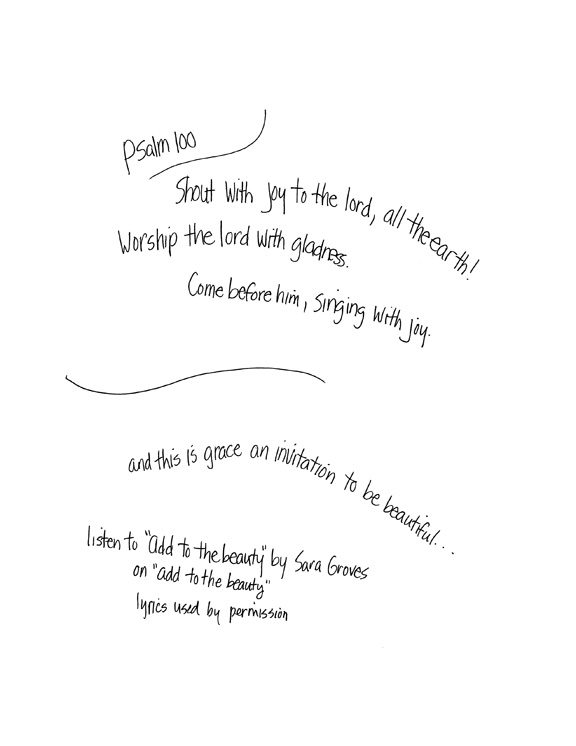 Psalm 100
Shout with joy to the lord, all the earth!
Worship the lord with gladness.
Come before him, singing with joy.
and this is grace an invitation to be beautiful...
listen to "add to the beauty" by Sara Groves
on "add to the beauty"
lyrics used by permission